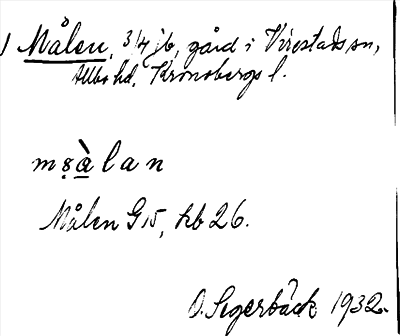 1 Målen, 3/4 jb, gård i Virestads sn,
Allbo hd, Kronobergs l.
mṣàlan
Målen G 15, kb 26.
O. Segerbäck 1932.